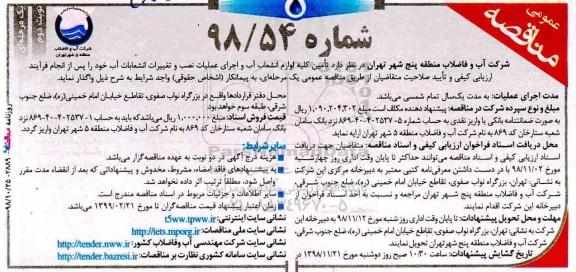 عمومی
مناقصه
شماره ۹۸/۵۴
یک مرحله‌ای
نوبت دوم
شرکت آب و فاضلاب
منطقه ۵ شهر تهران
شرکت آب و فاضلاب منطقه پنج شهر تهران در نظر دارد تأمین کلیه لوازم انشعاب آب و اجرای عملیات نصب و تغییرات انشعابات آب خود را پس از انجام فرآیند
ارزیابی کیفی و تأیید صلاحیت متقاضیان از طریق مناقصه عمومی یک مرحله‌ای، به پیمانکار (اشخاص حقوقی) واجد شرایط به شرح ذیل واگذار نماید.
مدت اجرای عملیات: به مدت یک‌سال تمام شمسی می‌باشد.
مبلغ و نوع سپرده شرکت در مناقصه: پیشنهاد دهنده مکلف است مبلغ ۱,۰۹۰,۲۰۴,۳۰۲ ریال
به صورت ضمانتنامه بانکی یا واریز نقدی به حساب شماره ۵-۴۰۲۵۳۷-۴۰-۸۶۹ نزد بانک سامان
شعبه ستارخان کد ۸۶۹ به نام شرکت آب و فاضلاب منطقه ۵ شهر تهران ارایه نماید.
محل دریافت اسناد فراخوان ارزیابی کیفی و اسناد مناقصه: متقاضیان جهت دریافت
اسناد ارزیابی کیفی و اسناد مناقصه می‌توانند حداکثر تا پایان وقت اداری روز چهارشنبه
مورخ ۹۸/۱۱/۰۲ با در دست داشتن معرفی‌نامه کتبی معتبر به دبیرخانه مرکزی این شرکت
به نشانی: تهران، بزرگراه نواب صفوی، تقاطع خیابان امام خمینی (ره)، ضلع جنوب شرقی،
شرکت آب و فاضلاب منطقه پنج شهر تهران مراجعه و نسبت به اخذ اسناد فراخوان از
دبیرخانه این شرکت اقدام نمایند.
مهلت و محل تحویل پیشنهادات: تا پایان وقت اداری روز شنبه مورخ ۹۸/۱۱/۱۲ به دبیرخانه این
شرکت به نشانی: تهران، بزرگراه نواب صفوی، تقاطع خیابان امام خمینی (ره)، ضلع جنوب شرقی،
شرکت آب و فاضلاب منطقه پنج شهر تهران تحویل نمایند.
تاریخ گشایش پیشنهادات: ساعت ۱۰:۳۰ صبح روز دوشنبه مورخ ۱۳۹۸/۱۱/۲۱
محل دفتر قراردادها واقع در بزرگراه نواب صفوی، تقاطع خیابان امام خمینی (ره)، ضلع جنوب
شرقی، طبقه سوم خواهد بود.
قیمت فروش اسناد: مبلغ ۱,۰۰۰,۰۰۰ ریال می‌باشد که باید به حساب ۱-۴۰۲۵۳۷-۴۰-۸۶۹ نزد
بانک سامان شعبه ستارخان کد ۸۶۹ به نام شرکت آب و فاضلاب منطقه ۵ شهر تهران واریز گردد.
سایر شرایط:
هزینه درج آگهی در دو نوبت به عهده مناقصه‌گزار می‌باشد.
به پیشنهادهای فاقد امضاء، مشروط، مخدوش و پیشنهاداتی که بعد از انقضاء مدت مقرر
واصل شود، مطلقاً ترتیب اثر داده نخواهد شد.
سایر اطلاعات و جزئیات مربوط در اسناد مناقصه مندرج است.
زمان اعتبار پیشنهاد قیمت مناقصه‌گران تا مورخ ۱۳۹۹/۰۲/۲۱ می‌باشد.
نشانی سایت اینترنتی: t5ww.tpww.ir
نشانی سایت ملی مناقصات: http://iets.mporg.ir
نشانی سایت شرکت مهندسی آب وفاضلاب کشور: http://tender.nww.ir
نشانی سایت سامانه کشوری نظارت بر مناقصات: http://tender.bazresi.ir